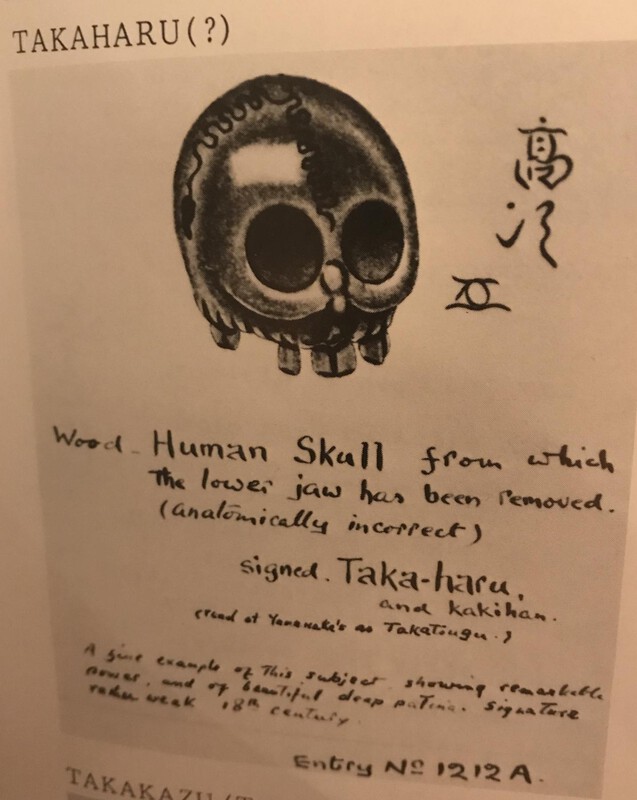 TAKAHARU(?)
高
Wood - Human Skull from which
the lower jaw has been removed.
(anatomically incorrect)
signed. Taka-haru,
and kakihan.
(read at Yamanaka's as Takatsugu.)
A fine example of this subject showing remarkable
power, and of beautiful deep patina. Signature
rather weak 18th century.
Entry No 1212A.
TAKAKAZU